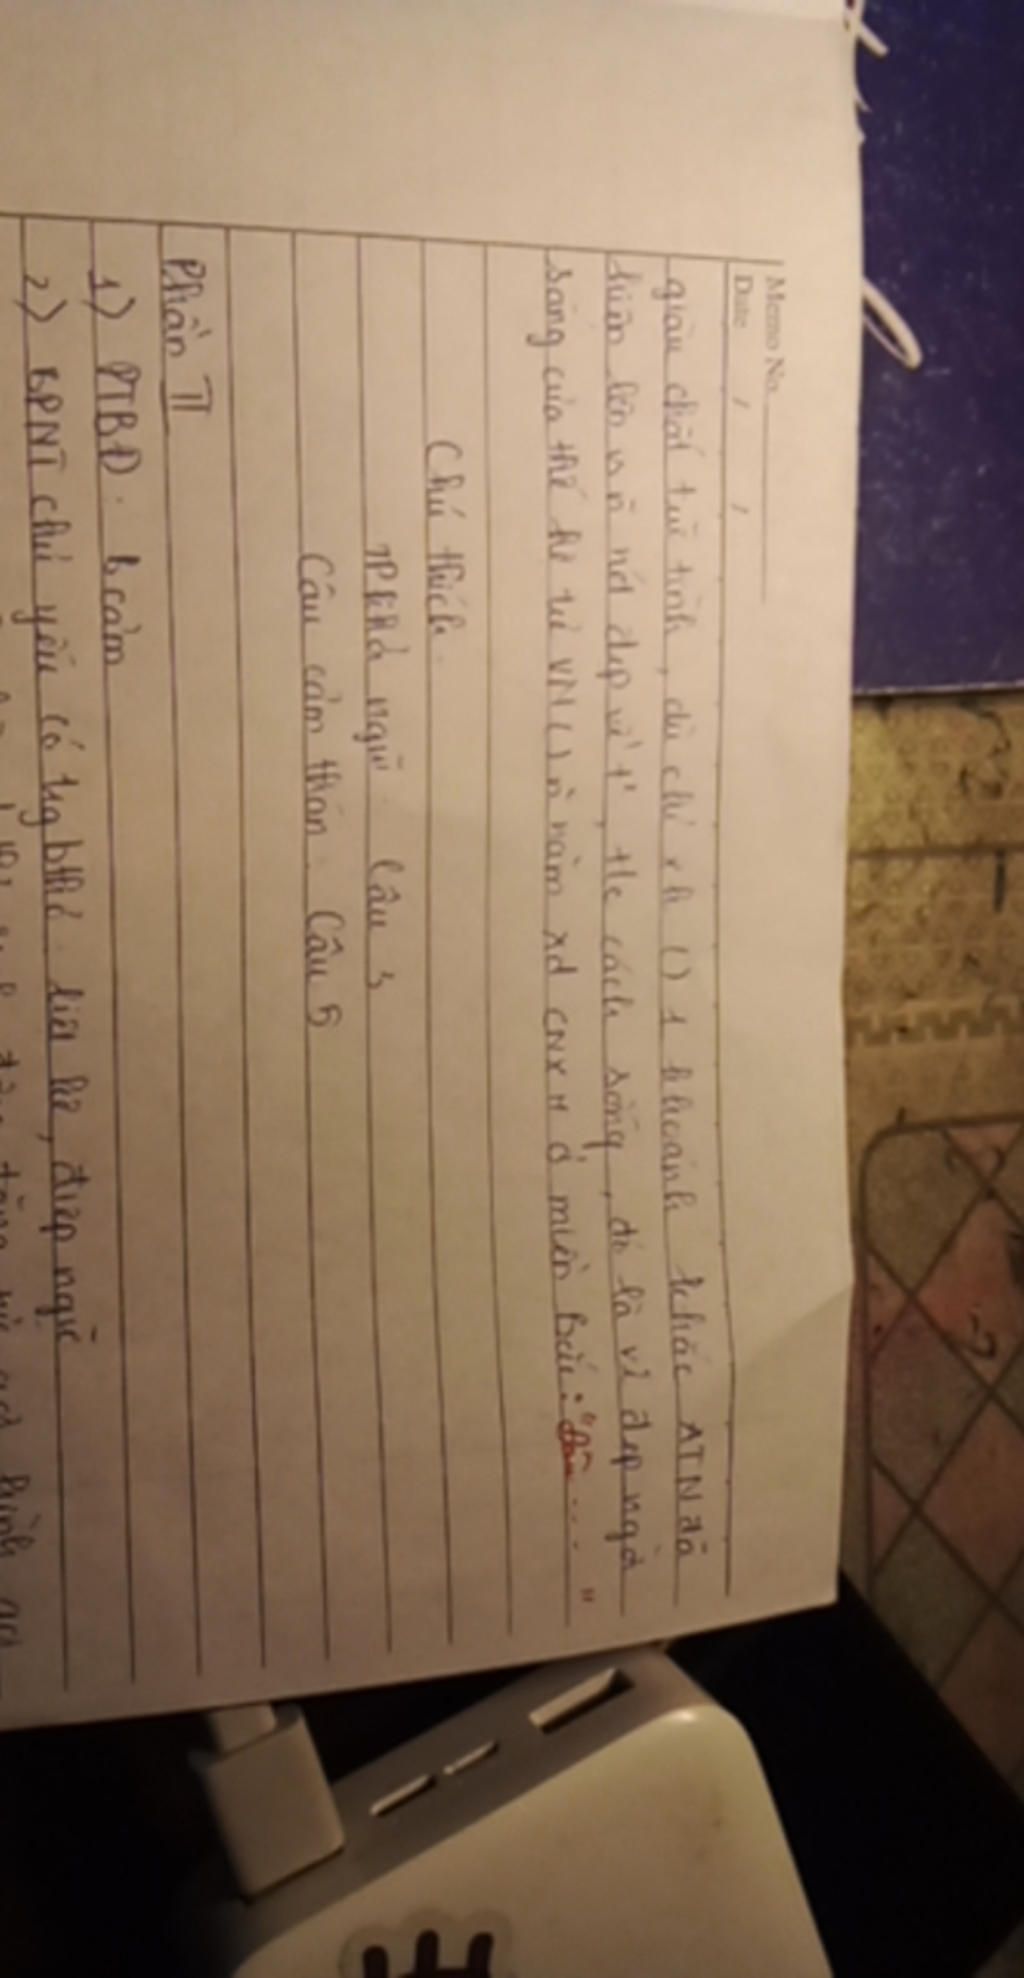 Memo No.
Date / /
giàu chất trữ tình, dù chỉ kh () 1 khoảnh khắc ATN đã
hiện lên vs n nét đẹp về t', t/c cách sống, đó là vẻ đẹp ngời
sáng của thế hệ trẻ VN () n năm xd CNXH ở miền Bắc: " ... "
Chú thích.
TP khởi ngữ. Câu 3
Câu cảm thán. Câu 5
Phần II
1) PTBĐ: bcảm
2) BPNT chủ yếu có trg bthơ: liệt kê, điệp ngữ